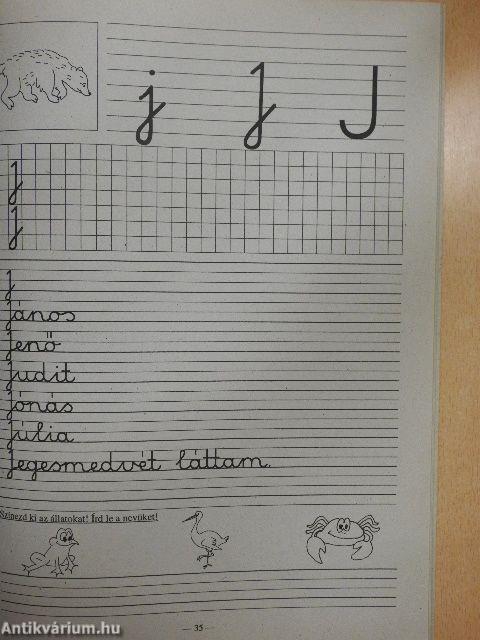 j J J
J
J
J
János
Jenő
Judit
Jónás
Júlia
Jegesmedvét láttam.
Színezd ki az állatokat! Írd le a nevüket!
— 35 —
Antikvárium.hu